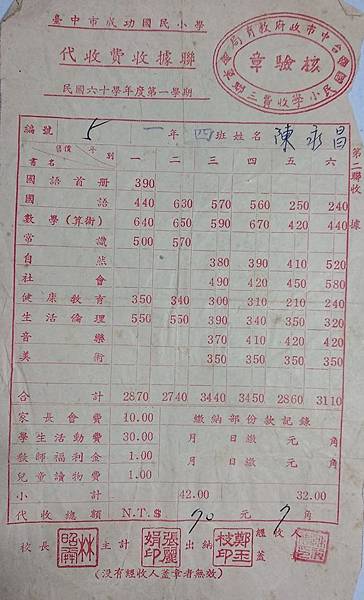 臺中市成功國民小學
代收費收據聯
民國六十學年度第一學期
核驗章
編號 5 一年四班姓名 陳永昌
第二聯收據
書名 售價 年別 一 二 三 四 五 六
國語首册 390
國語 440 630 570 560 250 240
數學(算術) 640 650 590 670 420 440
常識 500 570
自然 380 390 410 520
社會 490 420 450 580
健康教育 350 340 300 310 210 240
生活倫理 550 550 390 340 350 320
音樂 370 410 420 420
美術 350 350 350 350
合計 2870 2740 3440 3450 2860 3110
家長會費 10.00 繳納部份款記錄
學生活動費 30.00 月 日繳 元 角
教師福利金 1.00 月 日繳 元 角
兒童讀物費 1.00
小計 42.00 32.00
代收總額 N.T.$ 70 元 7 角
校長 主計 張麗娟印 出納 鄭玉枝印 經收人蓋章
(沒有經收人蓋章者無效)